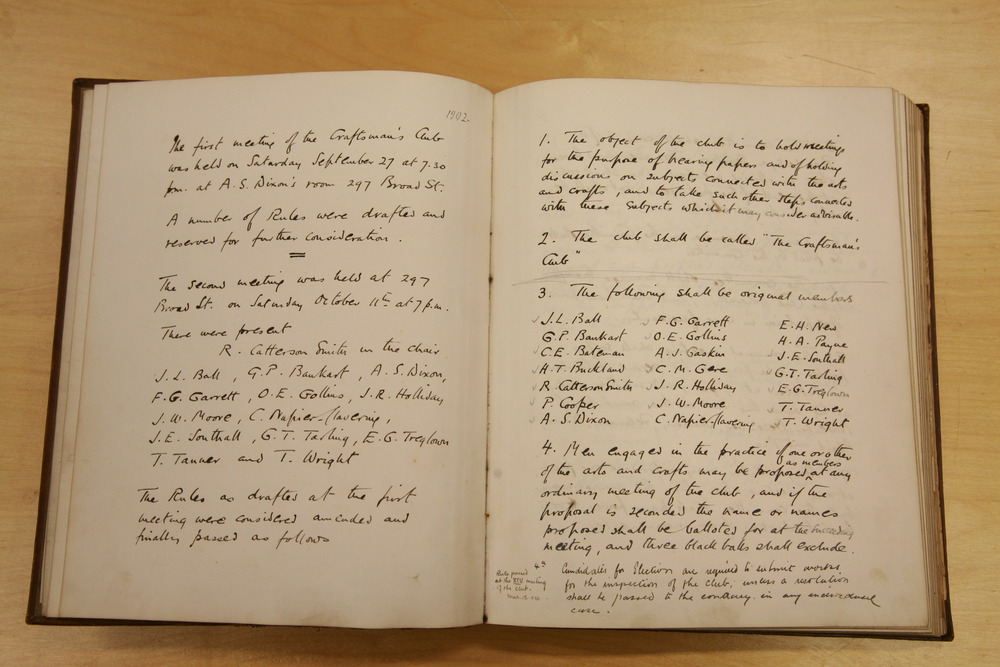 1902.
The first meeting of the Craftsman's Club
was held on Saturday September 27 at 7.30
pm. at A.S. Dixon's room 297 Broad St.
A number of Rules were drafted and
reserved for further consideration.
The second meeting was held at 297
Broad St. on Saturday October 11th at 7 p.m.
There were present
R. Catterson Smith in the chair
J.L. Ball, G.P. Bankart, A.S. Dixon,
F.G. Garrett, O.E. Gollins, J.R. Holliday,
J.W. Moore, C. Napier-Clavering,
J.E. Southall, G.T. Tarling, E.G. Treglown
T. Tanner and T. Wright
The Rules as drafted at the first
meeting were considered amended and
finally passed as follows
1. The object of the club is to hold meetings
for the purpose of hearing papers and of holding
discussions on subjects connected with the arts
and crafts, and to take such other steps connected
with these subjects which it may consider advisable.
2. The club shall be called "The Craftsman's
Club"
3. The following shall be original members
J.L. Ball F.G. Garrett E.H. New
G.P. Bankart O.E. Gollins H.A. Payne
C.E. Bateman A.J. Gaskin J.E. Southall
H.T. Buckland C.M. Gere G.T. Tarling
R. Catterson Smith J.R. Holliday E.G. Treglown
P. Cooper J.W. Moore T. Tanner
A.S. Dixon C. Napier-Clavering T. Wright
4. Men engaged in the practice of one or other
of the arts and crafts may be proposed as members at any
ordinary meeting of the club, and if the
proposal is seconded the name or names
proposed shall be balloted for at the succeeding
meeting, and three black balls shall exclude.
4a Candidates for Election are required to submit works
for the inspection of the club; unless a resolution
shall be passed to the contrary in any individual
case.
Rule passed
at the XXV meeting
of the club.